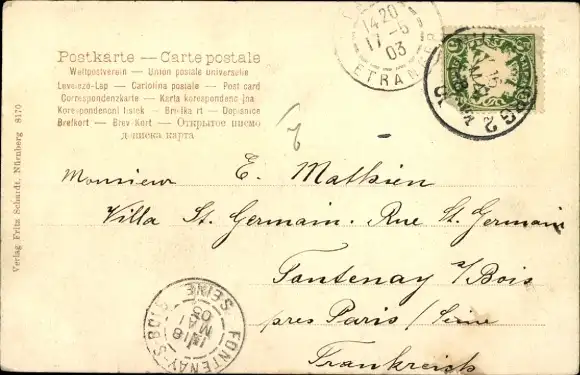 Postkarte — Carte postale
Weltpostverein — Union postale universelle
Levelező-Lap — Cartolina postale — Post card
Correspondenzkarte — Karta korespondenc jna
Korespondenční lístek — Briefka rt — Dopisnice
Brefkort — Brev-Kort — Открытое писмо
дописка карта
1420
17 -5
03
ETRANGER
Monsieur E. Mathieu
Villa St. Germain. Rue St. Germain
Fontenay s/Bois
près Paris / Seine
Frankreich
FONTENAY-S-BOIS
SEINE
18
MAI
03
Verlag Fritz Schardt, Nürnberg 8170